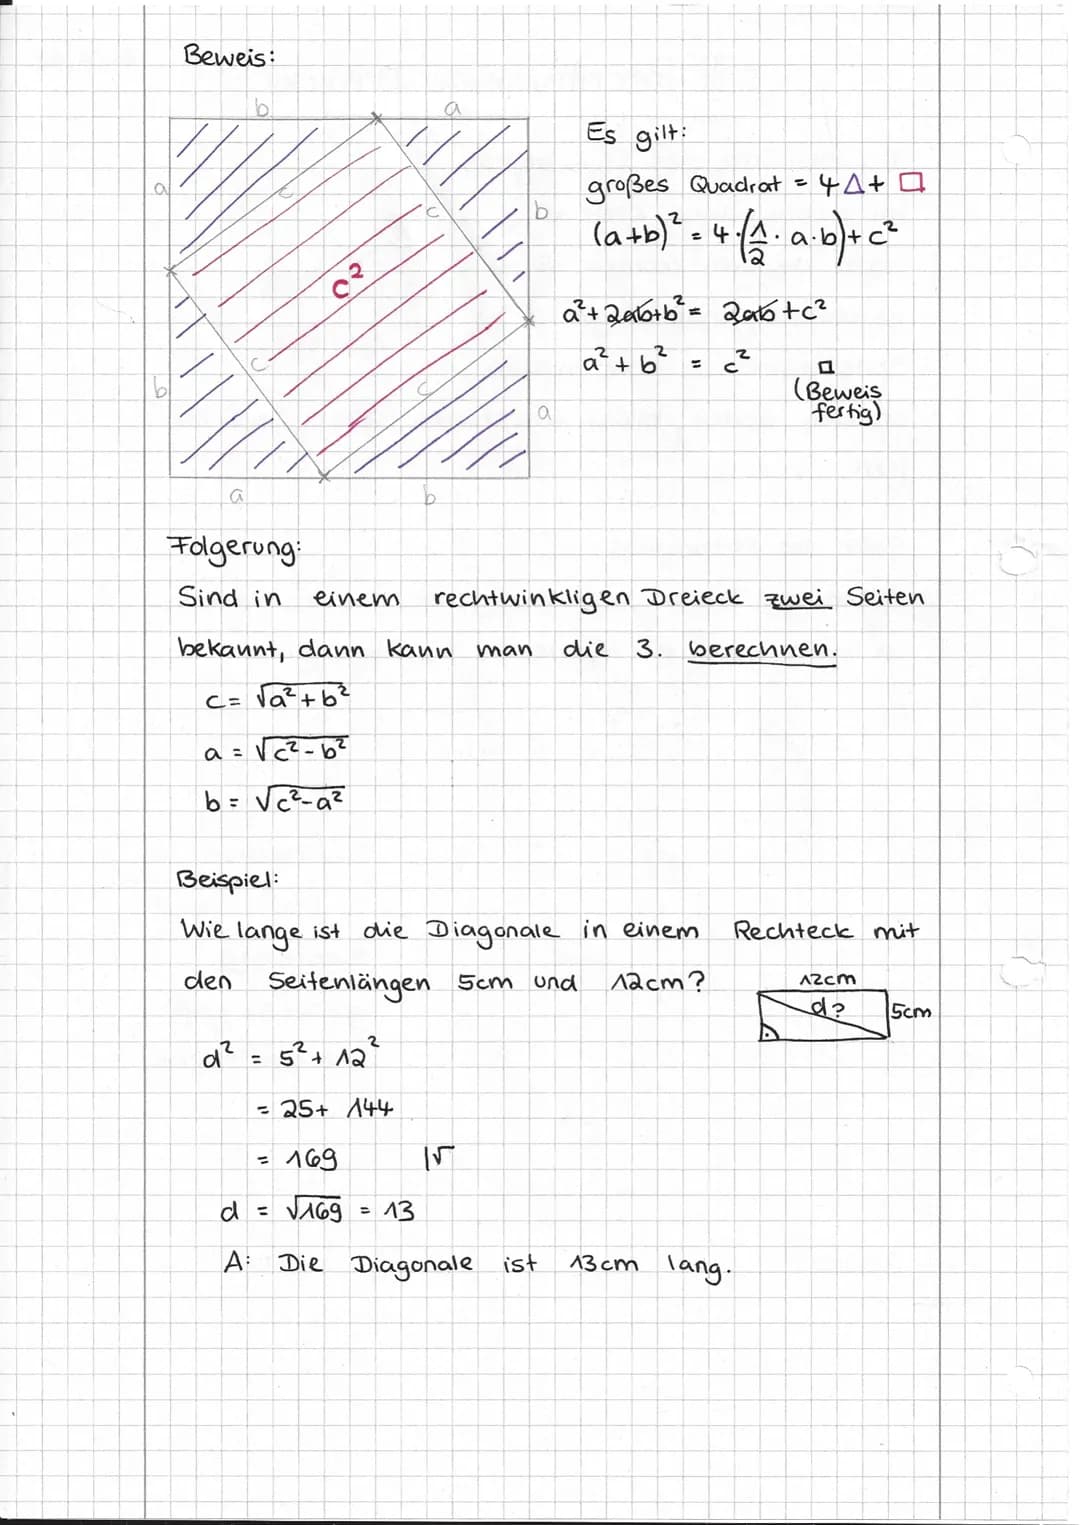 Beweis:
b a
a c c b
c²
b c c a
a b
Es gilt:
großes Quadrat = 4△+ □
(a+b)² = 4·(1/2 · a·b)+c²
a²+2ab+b² = 2ab+c²
a² + b² = c² □
(Beweis
fertig)
Folgerung:
Sind in einem rechtwinkligen Dreieck zwei Seiten
bekannt, dann kann man die 3. berechnen.
c = √(a²+b²)
a = √(c²-b²)
b = √(c²-a²)
Beispiel:
Wie lange ist die Diagonale in einem Rechteck mit
den Seitenlängen 5cm und 12cm?
12cm
d? 5cm
d² = 5² + 12²
= 25 + 144
= 169 |√
d = √169 = 13
A: Die Diagonale ist 13cm lang.